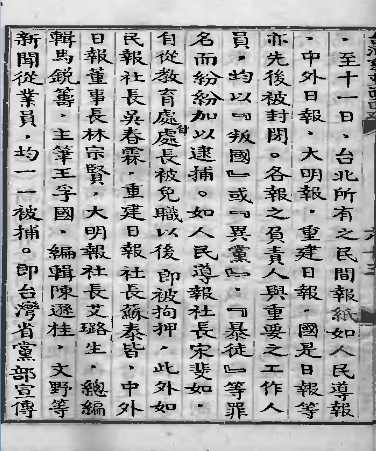 ．至十一日，台北所有之民間報紙如人民導報
．中外日報．大明報．重建日報．國是日報等
亦先後被封閉。各報之負責人與重要之工作人
員，均以『叛國』或『異黨』．『暴徒』等罪
名而紛紛加以逮捕。如人民導報社長宋斐如．
自從教育處處長被免職以後即被拘押，此外如
民報社長吳春霖．重建日報社長蘇泰皆．中外
日報董事長林宗賢．大明報社長艾璐生．總編
輯馬銳籌．主筆王孚國．編輯陳遜桂．文野等
新聞從業員．均一一被捕。即台灣省黨部宣傳